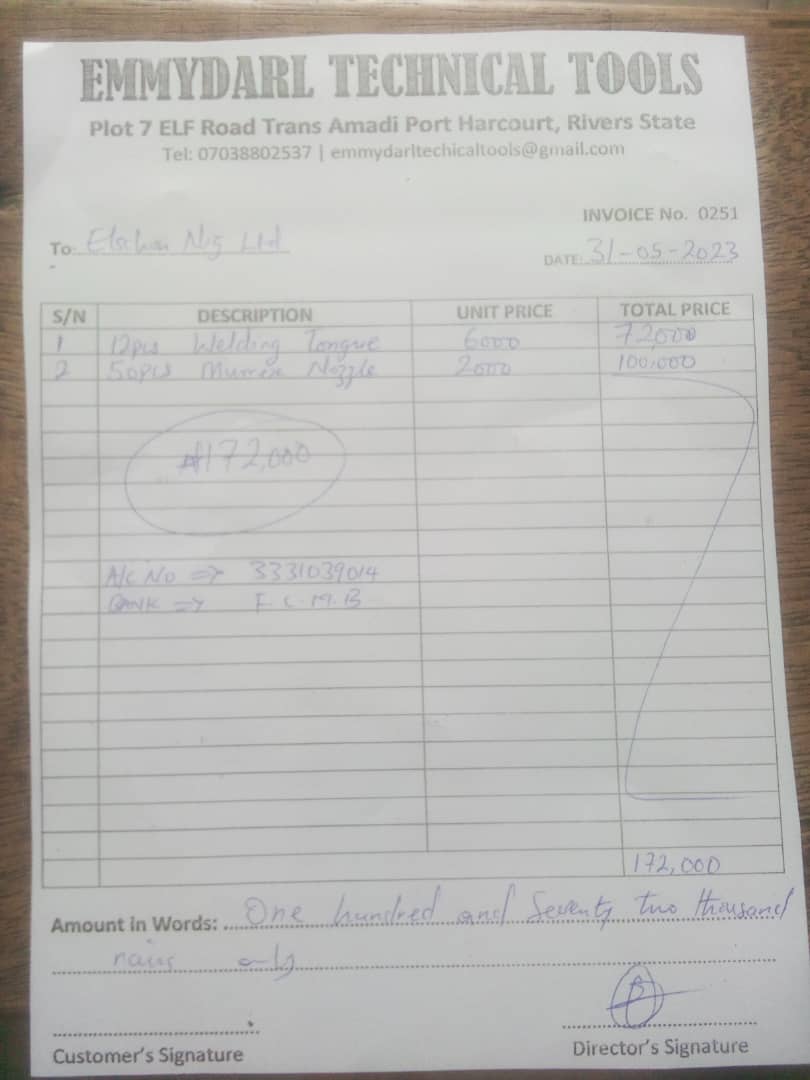 EMMYDARL TECHNICAL TOOLS
Plot 7 ELF Road Trans Amadi Port Harcourt, Rivers State
Tel: 07038802537 | emmydarltechicaltools@gmail.com
INVOICE No. 0251
To: Nig Ltd
DATE: 31-05-2023
S/N DESCRIPTION UNIT PRICE TOTAL PRICE
1 12pcs Welding Tongue 6000 72000
2 50pcs Nozzle 2000 100,000
₦172,000
A/C No => 3331039014
BANK => F.C.M.B
172,000
Amount in Words: One hundred and Seventy two thousand
naira only
Customer's Signature
Director's Signature